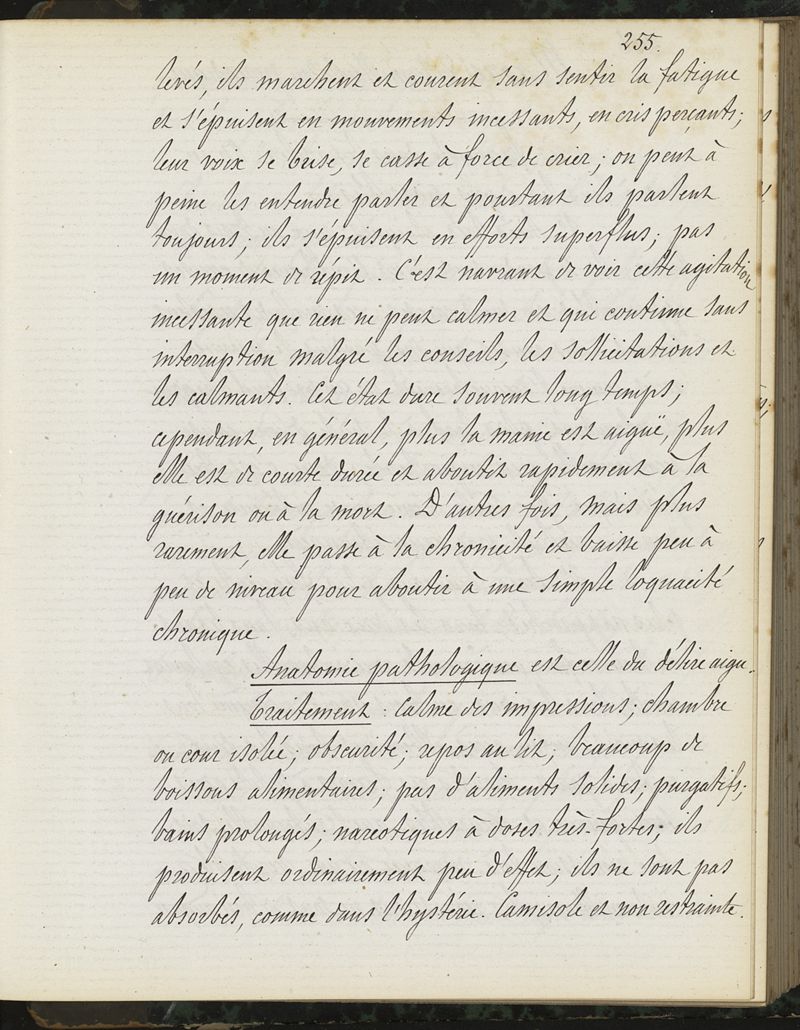 255.
levés, ils marchent et courent sans sentir la fatigue
et s'épuisent en mouvements incessants, en cris perçants;
leur voix se brise, se casse à force de crier; on peut à
peine les entendre parler et pourtant ils parlent
toujours; ils s'épuisent en efforts superflus; pas
un moment de répit. C'est navrant de voir cette agitation
incessante que rien ne peut calmer et qui continue sans
interruption malgré les conseils, les sollicitations et
les calmants. Cet état dure souvent long temps;
cependant, en général, plus la manie est aiguë, plus
elle est de courte durée et aboutit rapidement à la
guérison ou à la mort. D'autres fois, mais plus
rarement, elle passe à la chronicité et baisse peu à
peu de niveau pour aboutir à une simple loquacité
chronique.
Anatomie pathologique est celle du délire aigu.
Traitement: Calme des impressions; chambre
ou cour isolée; obscurité; repos au lit; beaucoup de
boissons alimentaires; pas d'aliments solides; purgatifs;
bains prolongés; narcotiques à doses très-fortes; ils
produisent ordinairement peu d'effet; ils ne sont pas
absorbés, comme dans l'hystérie. Camisole et non restrainte.